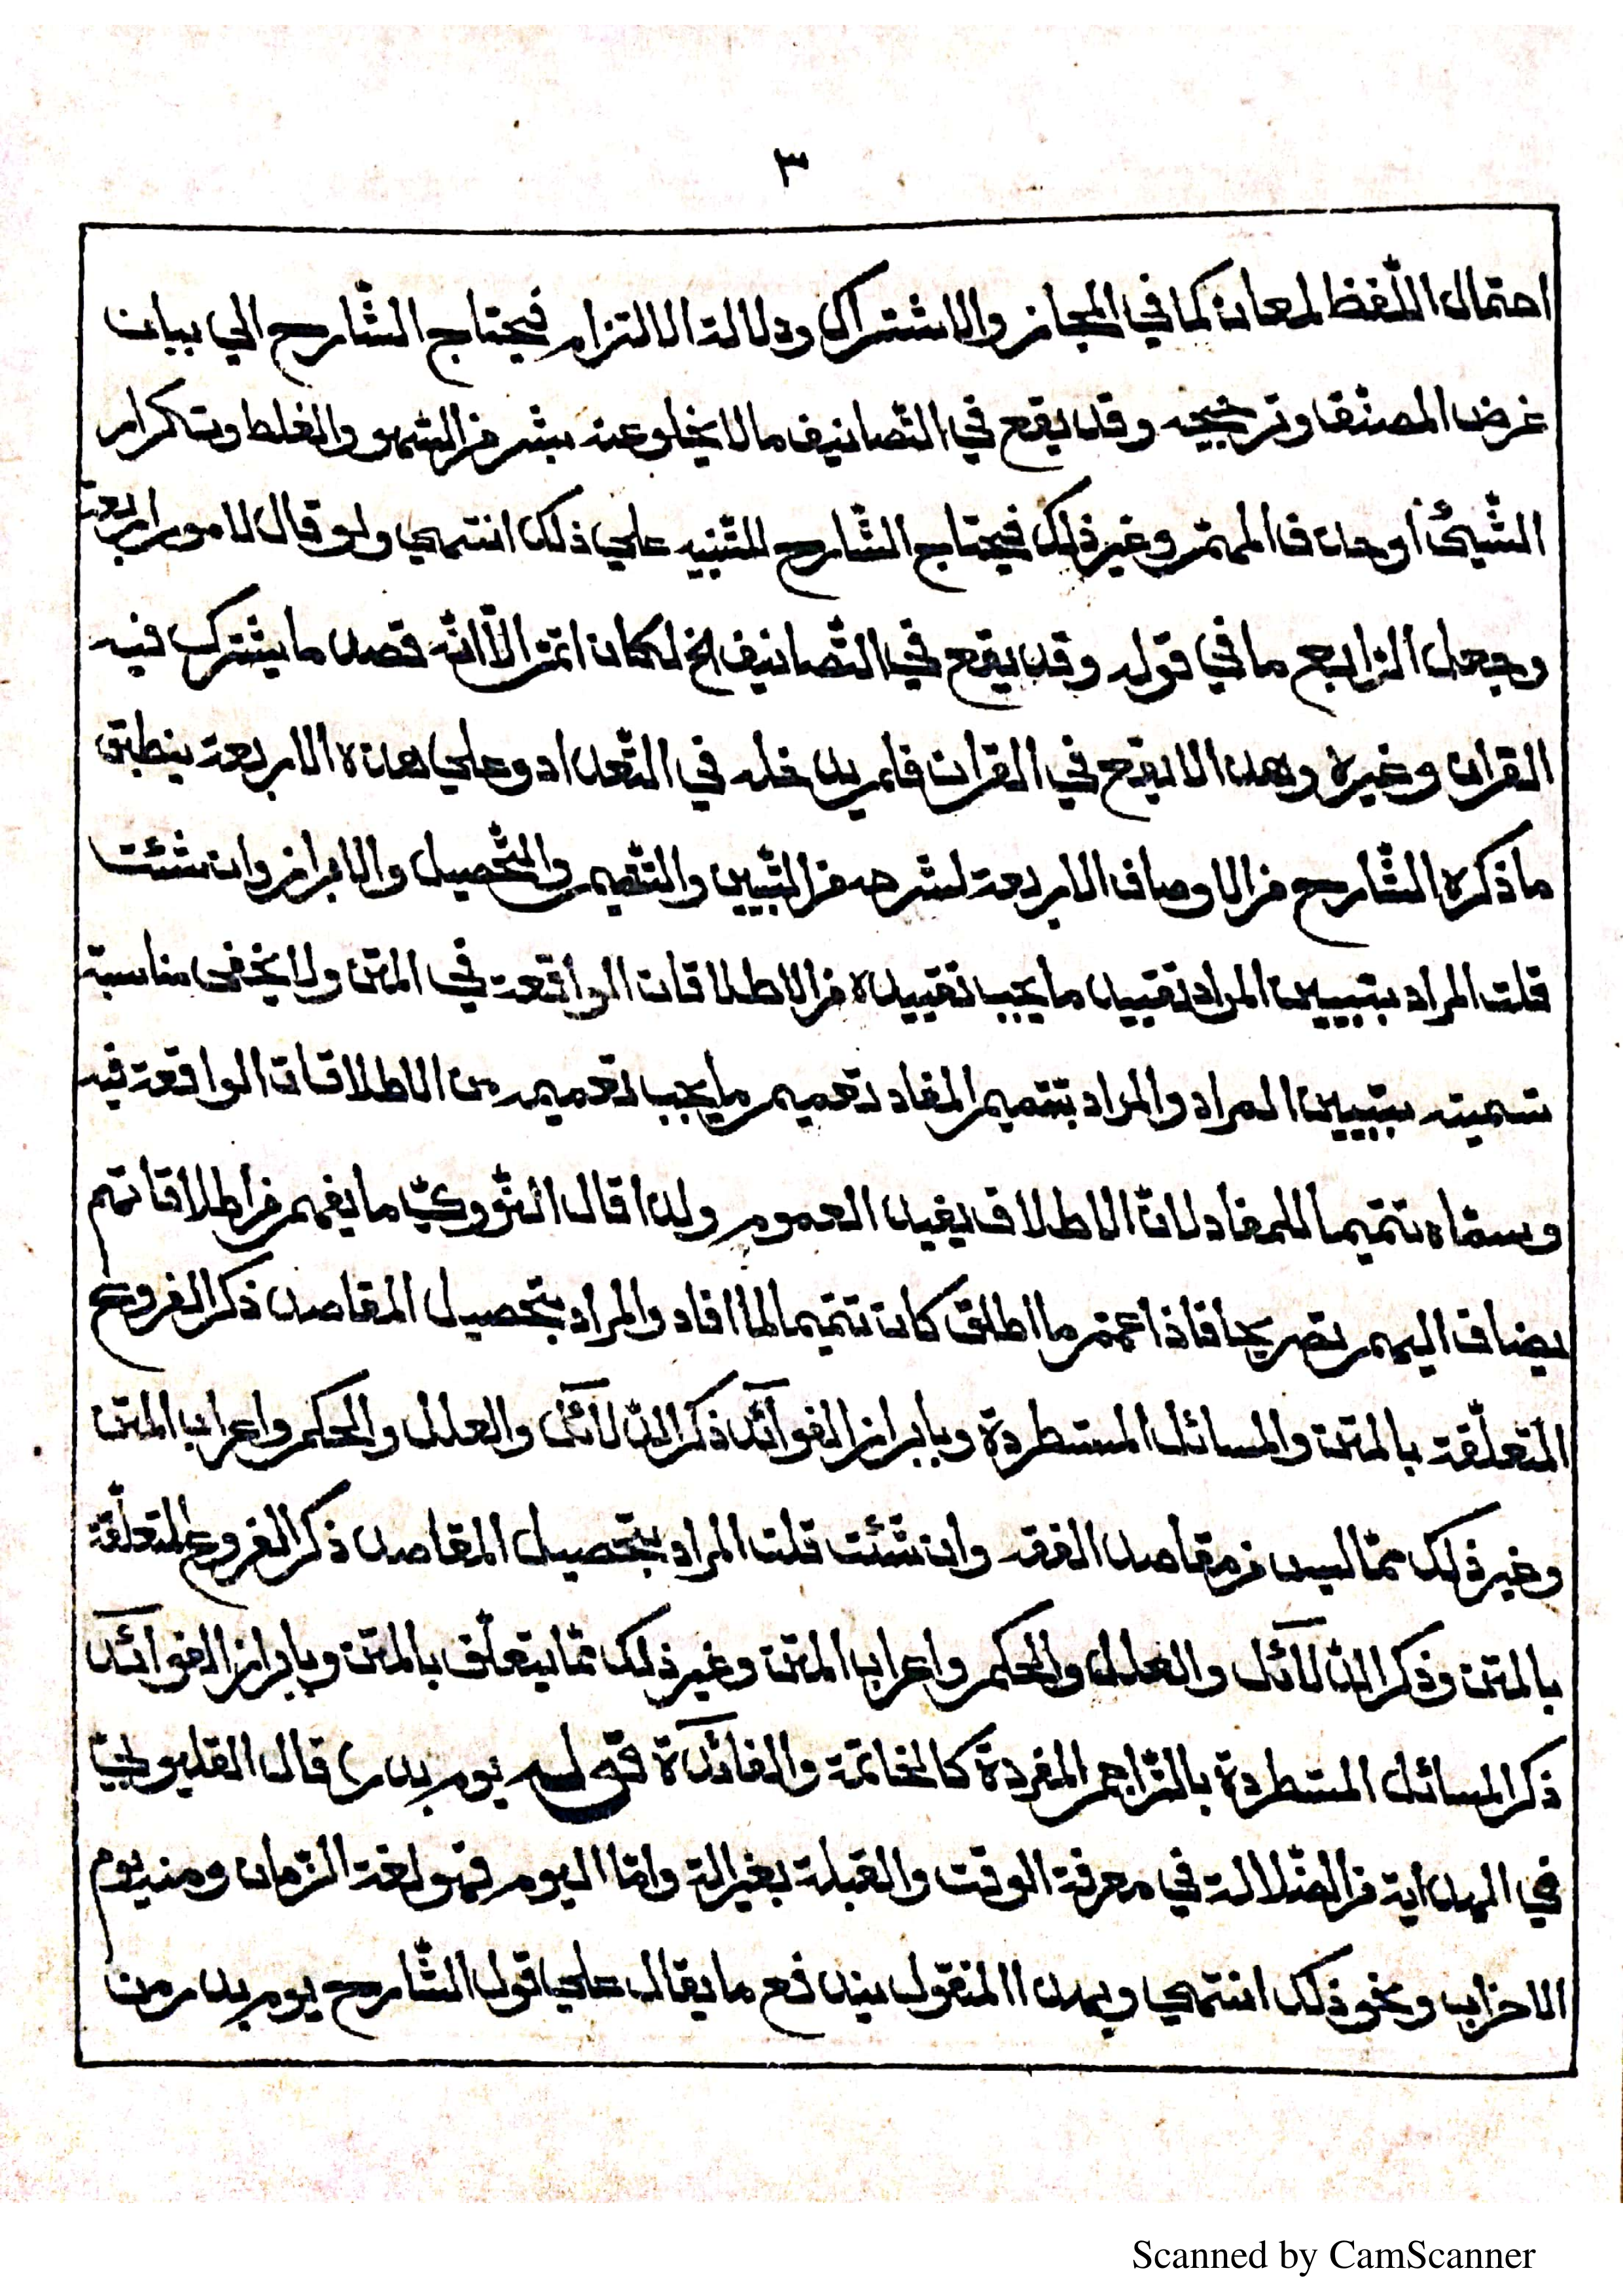 ٣
احتمال اللّفظ لمعان كما في المجاز والاشتراك ودلالة الالتزام فيحتاج الشّارح الي بيان
غرض المصنّف وترجيحه وقد يقع في التّصانيف مالا يخلو عنه بشر من السّهو والغلط وتكرار
الشّيئ اوحذف المهمّ وغير ذلك فيحتاج الشّارح للتّنبيه علي ذلك انتهي ولو قال لامور اربعة
وجعل الرّابع ما في قوله وقد يقع في التّصانيف الخ لكان اتمّ الاّ انّه قصد ما يشترك فيه
القران وغيره وهذا لا يقع في القران فلم يدخله في التّعداد وعلي هذه الاربعة ينطبق
ما ذكره الشّارح من الاوصاف الاربعة لشرحه من التّبيين والتّتميم والتّحصيل والابراز وان شئت
قلت المراد بتبيين المراد تقييد ما يجب تقييده من الاطلاقات الواقعة في المتن ولا يخفى مناسبة
تسميته بتبيين المراد والمراد بتتميم المفاد تعميم ما يجب تعميمه من الاطلاقات الواقعة فيه
وسمّاه تتميما للمفاد لانّ الاطلاق يفيد العموم ولذا قال النّوويّ ما يفهم من اطلاقاتهم
يضاف اليهم تصريحا فاذا عمّم ما اطلق كان تتميما لما افاد والمراد بتحصيل المقاصد ذكر الفروع
المتعلّقة بالمتن والمسائل المستطردة وبابراز الفوآئد ذكر الدّلآئل والعلل والحكم واعراب المتن
وغير ذلك ممّا ليس من مقاصد الفقه وان شئت قلت المراد بتحصيل المقاصد ذكر الفروع المتعلّقة
بالمتن وذكر الدّلآئل والعلل والحكم واعراب المتن وغير ذلك ممّا يتعلّق بالمتن وبابراز الفوآئد
ذكر المسائل المستطردة بالتّراجم المفردة كالخاتمة والفآئدة قوله يوم بدر) قال القليوبيّ
في الهداية من الضّلالة في معرفة الوقت والقبلة بغير الة وامّا اليوم فهو لغة الزّمان ومنه يوم
الاحزاب ونحو ذلك انتهي وبهذا المنقول يندفع ما يقال علي قول الشّارح يوم بدر من
Scanned by CamScanner